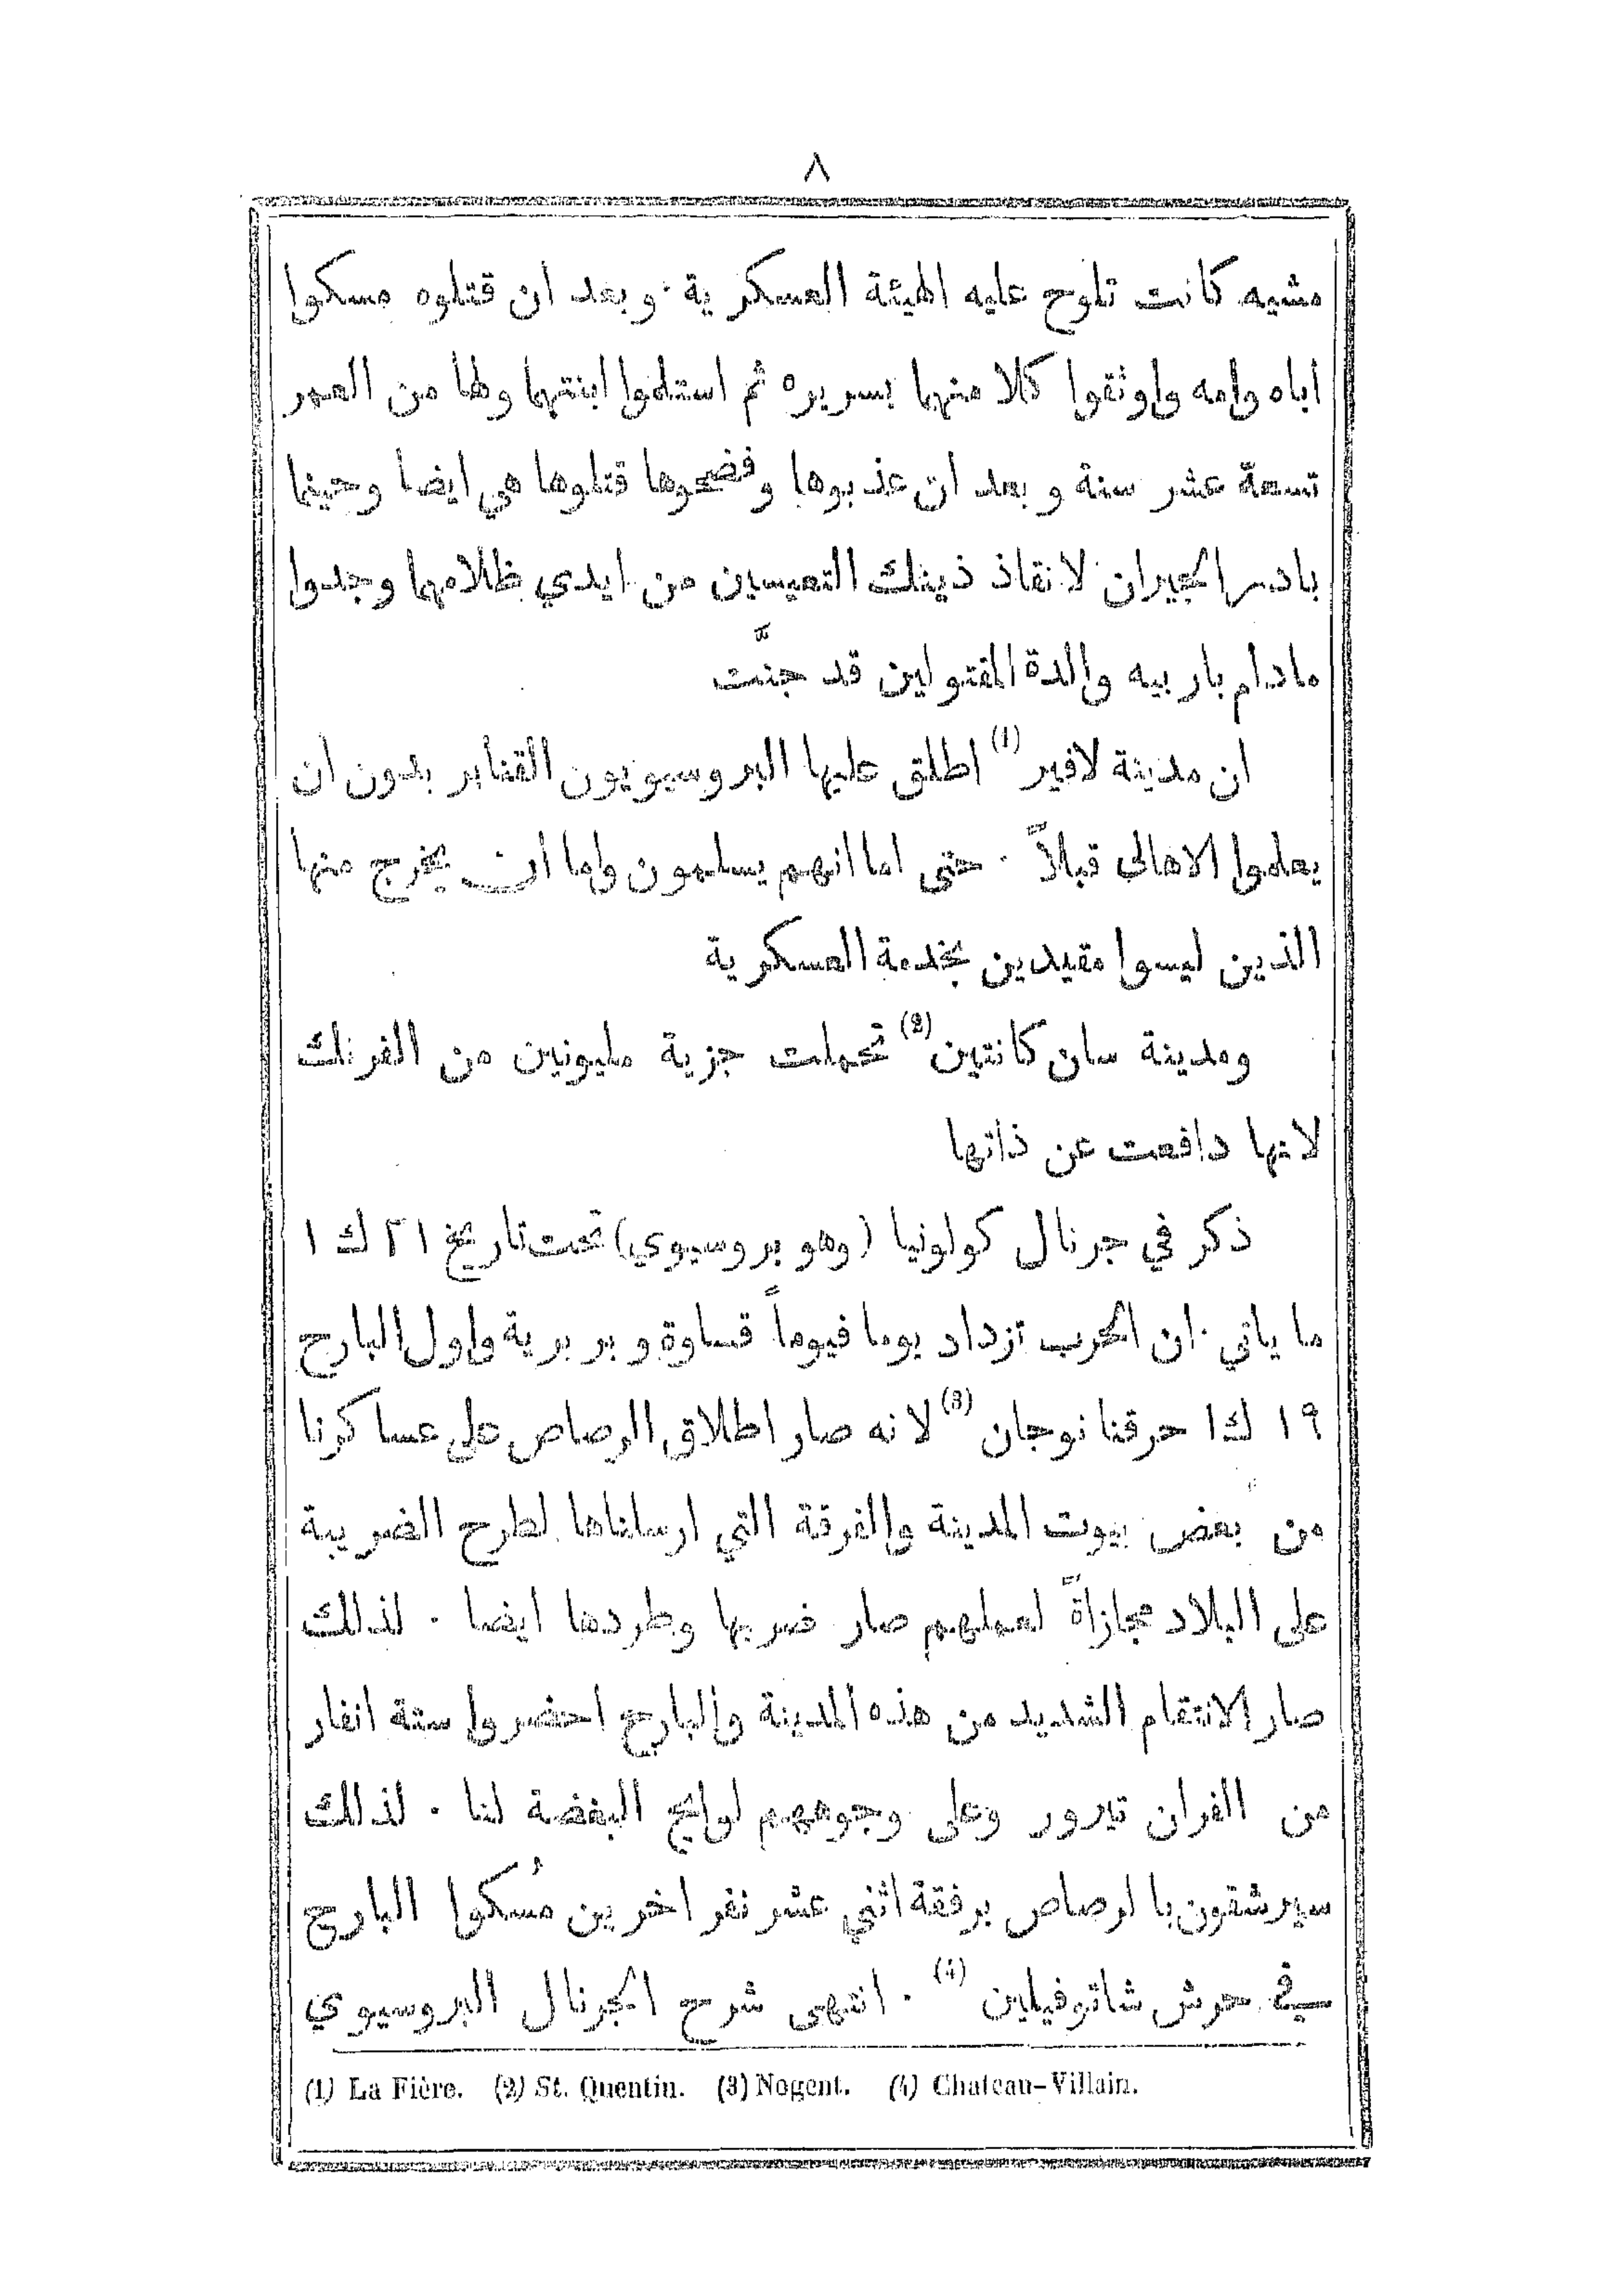 ٨
مشيه كانت تلوح عليه الهيئة العسكرية · وبعد ان قتلوه مسكوا
اباه وامه واوثقوا كلا منهما بسريره ثم استلموا ابنتهما ولها من العمر
تسعة عشر سنة وبعد ان عذبوها وفضحوها قتلوها هي ايضا وحينما
بادر الجيران لانقاذ ذينك التعيسين من ايدي ظلامهما وجدوا
مادام باربيه والدة المقتولين قد جنَّت
ان مدينة لافير (1) اطلق عليها البروسيويون القنابر بدون ان
يعلموا الاهالى قبلاً · حتى اما انهم يسلمون واما ان يخرج منها
الذين ليسوا مقيدين بخدمة العسكرية
ومدينة سان كانتين (2) تحملت جزية مليونين من الفرنك
لانها دافعت عن ذاتها
ذكر في جرنال كولونيا (وهو بروسيوي) تحت تاريخ ٢١ ك ١
ما ياتي · ان الحرب تزداد يوما فيوماً قساوة وبربرية واول البارح
١٩ ك١ حرقنا نوجان (3) لانه صار اطلاق الرصاص على عساكرنا
من بعض بيوت المدينة والفرقة التي ارسلناها لطرح الضريبة
على البلاد مجازاةً لعملهم صار ضربها وطردها ايضا · لذلك
صار الانتقام الشديد من هذه المدينة والبارح احضروا ستة انفار
من الفران تيرور وعلى وجوههم لوايح البغضة لنا · لذلك
سيرشقون بالرصاص برفقة اثني عشر نفر اخرين مُسكوا البارح
في حرش شاتوفيلين (4) · انتهى شرح الجرنال البروسيوي
(1) La Fière. (2) St. Quentin. (3) Nogent. (4) Chateau-Villain.